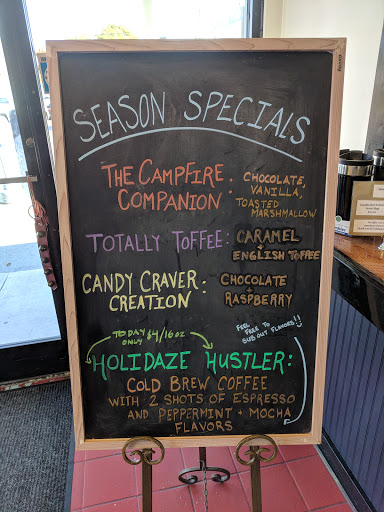 SEASON SPECIALS
THE CAMPFIRE COMPANION: CHOCOLATE, VANILLA, TOASTED MARSHMALLOW
TOTALLY TOFFEE: CARAMEL + ENGLISH TOFFEE
CANDY CRAVER CREATION: CHOCOLATE + RASPBERRY
TODAY ONLY $4/16oz
FEEL FREE TO SUB OUT FLAVORS!!
HOLIDAZE HUSTLER:
COLD BREW COFFEE
WITH 2 SHOTS OF ESPRESSO
AND PEPPERMINT + MOCHA
FLAVORS